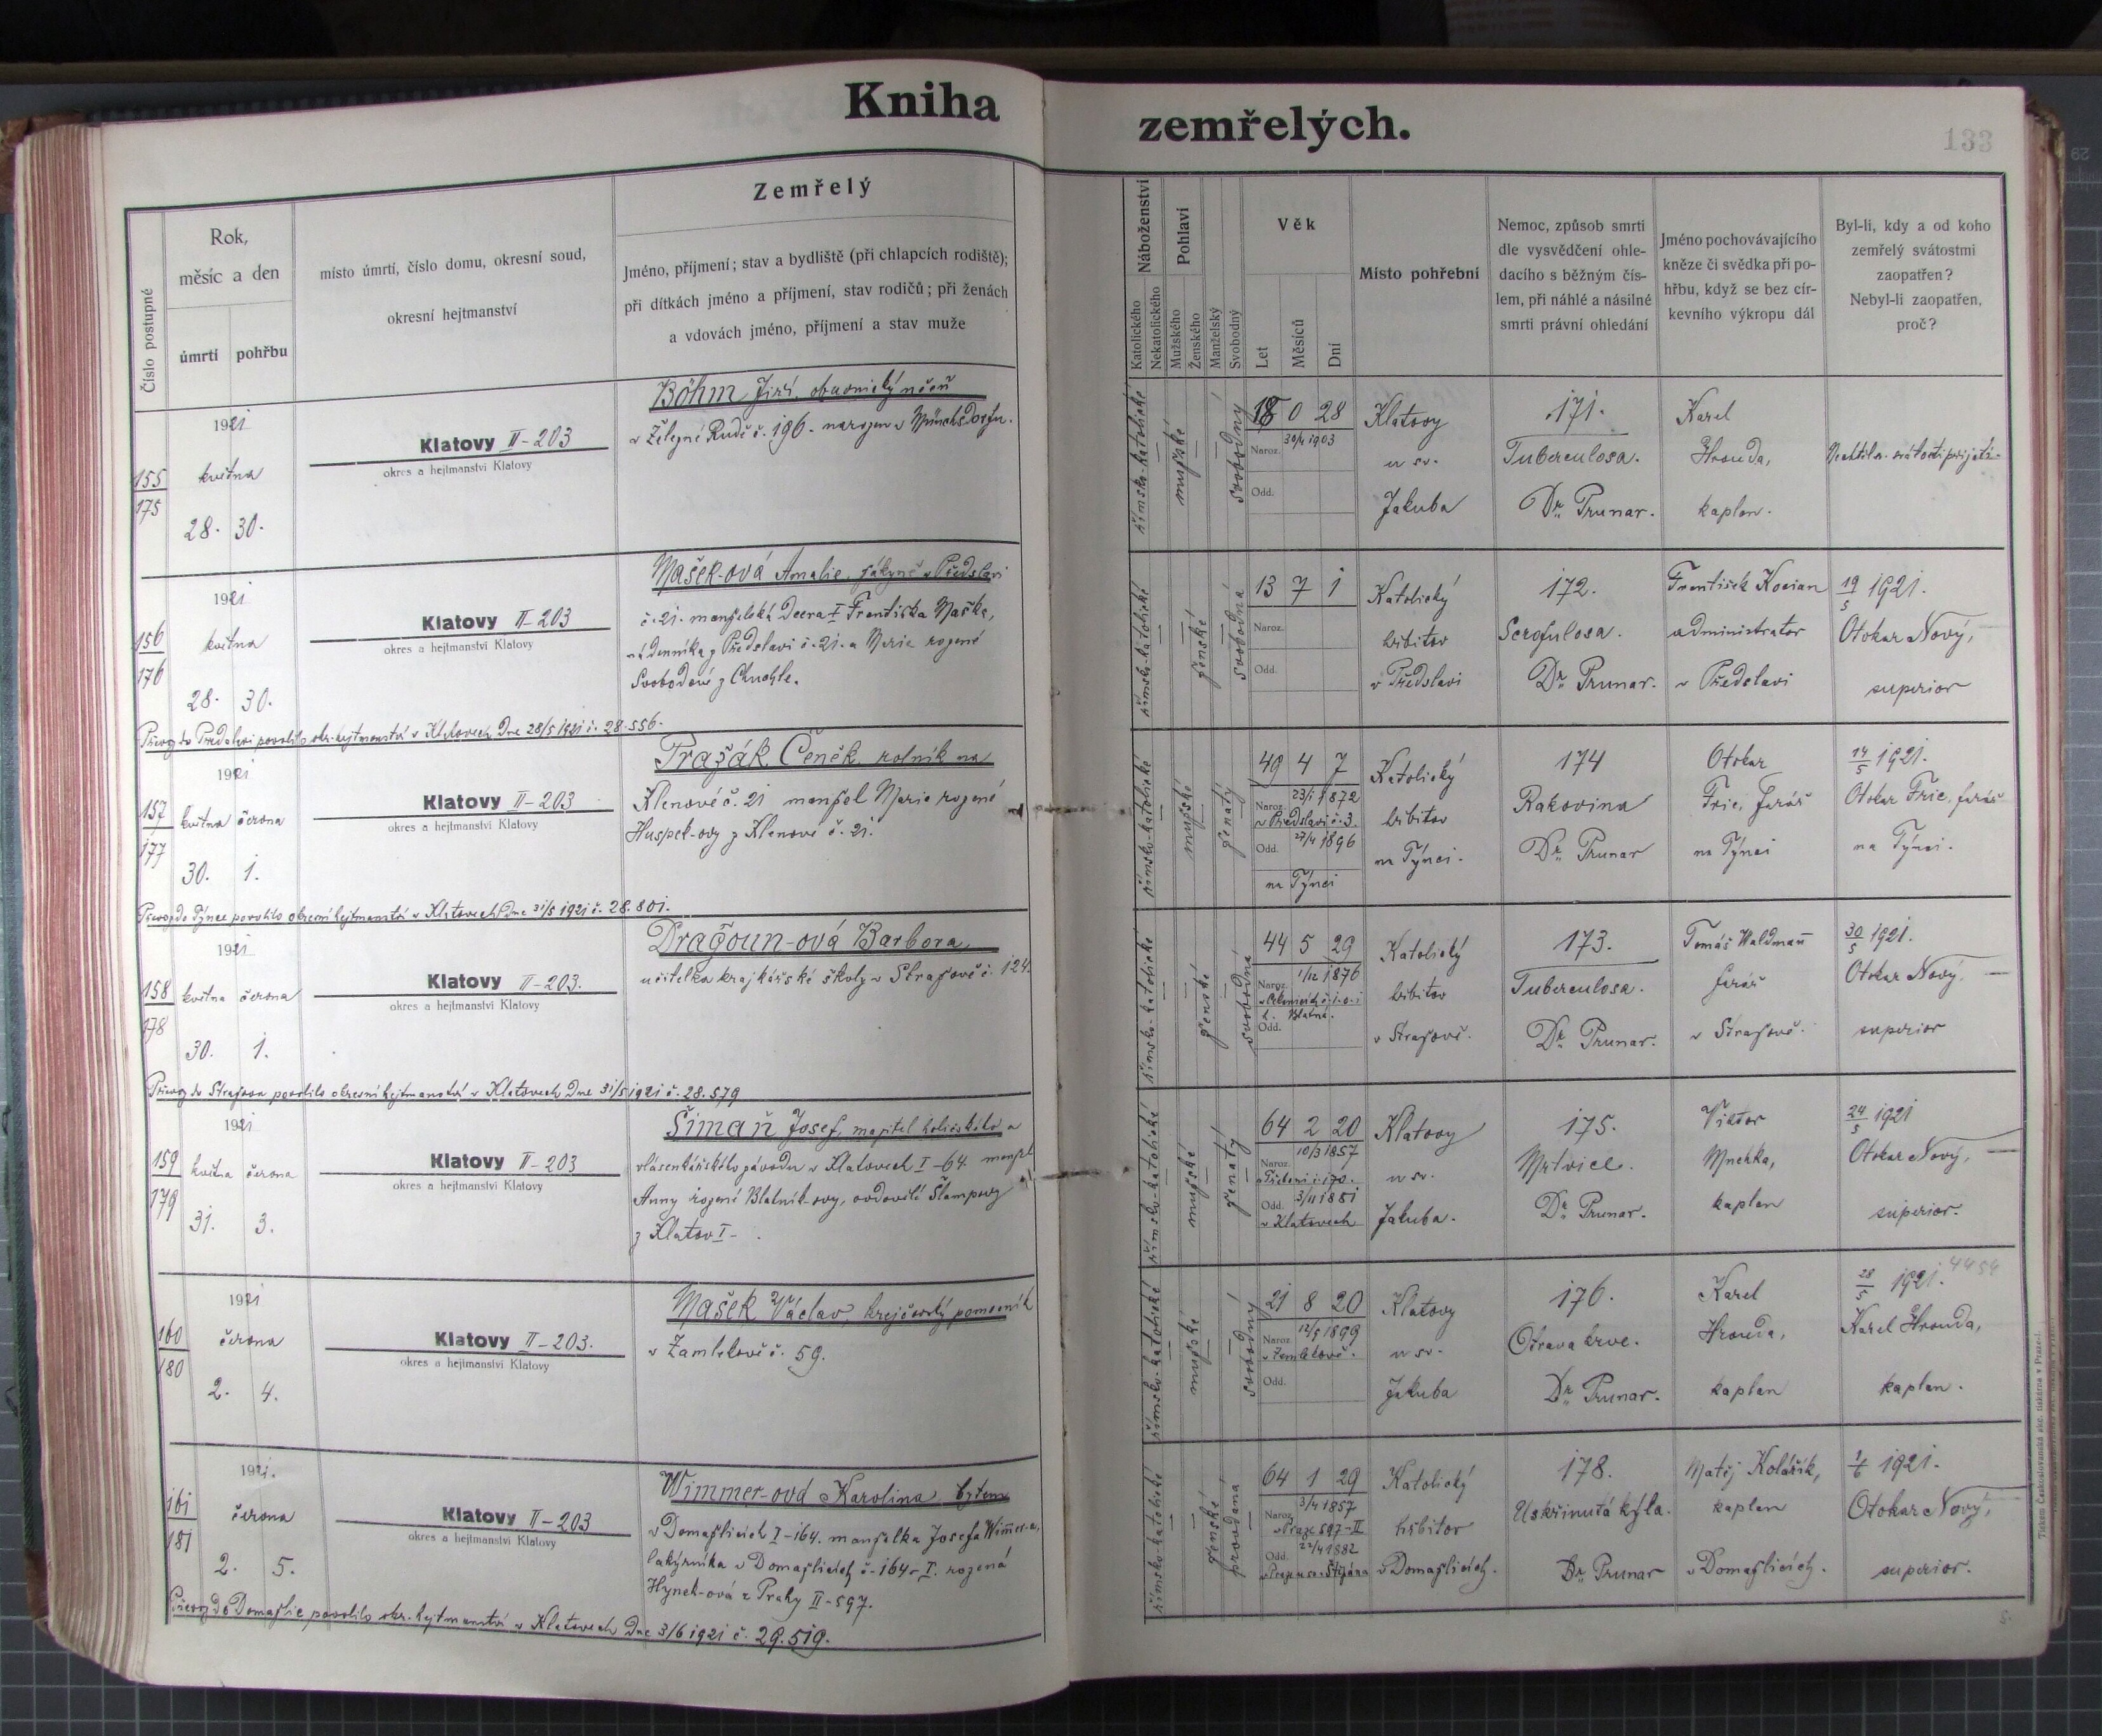 Kniha zemřelých.
133
Číslo postupné
Rok,
měsíc a den
úmrtí pohřbu
místo úmrtí, číslo domu, okresní soud,
okresní hejtmanství
Zemřelý
Jméno, příjmení; stav a bydliště (při chlapcích rodiště);
při dítkách jméno a příjmení, stav rodičů; při ženách
a vdovách jméno, příjmení a stav muže
Náboženství
Katolického
Nekatolického
Pohlaví
Mužského
Ženského
Manželský
Svobodný
Věk
Let
Měsíců
Dní
Místo pohřební
Nemoc, způsob smrti
dle vysvědčení ohle-
dacího s běžným čís-
lem, při náhlé a násilné
smrti právní ohledání
Jméno pochovávajícího
kněze či svědka při po-
hřbu, když se bez cír-
kevního výkropu dál
Byl-li, kdy a od koho
zemřelý svátostmi
zaopatřen?
Nebyl-li zaopatřen,
proč?
155
175
1921
května
28. 30.
Klatovy II-203
okres a hejtmanství Klatovy
Böhm Jiří, obuvnický učeň
v Železné Rudě č. 196. narozen v Münchsdorfu.
římsko-katolické
mužské
svobodný
18 0 28
Naroz. 30/4 1903
Odd.
Klatovy
u sv.
Jakuba
171.
Tuberculosa.
Dr. Prunar.
Karel
Hrouda,
kaplan.
Nechtěl sv. svátosti přijati.
156
176
1921
května
28. 30.
Klatovy II-203
okres a hejtmanství Klatovy
Mašek-ová Amalie, žákyně v Předslavi
č. 21. manželská dcera I Františka Maška,
nádenníka z Předslavi č. 21. a Marie rozené
Svobodové z Chuchle.
Převoz do Předslavi povolilo okr. hejtmanství v Klatovech dne 28/5 1921 č. 28.556.
římsko-katolické
ženské
svobodná
13 7 1
Naroz.
Odd.
Katolický
hřbitov
v Předslavi
172.
Scrofulosa.
Dr. Prunar.
František Kocian
administrator
v Předslavi
19/5 1921.
Otokar Nový,
superior
157
177
1921
května června
30. 1.
Klatovy II-203
okres a hejtmanství Klatovy
Pražák Čeněk, rolník na
Klenové č. 21 manžel Marie rozené
Huspek-ovy z Klenové č. 21.
Převoz do Týnce povolilo okresní hejtmanství v Klatovech dne 31/5 1921 č. 28.801.
římsko-katolické
mužské
ženatý
49 4 7
23/1 1872
Naroz. v Předslavi č. 3.
Odd. 27/4 1896
na Týnci
Katolický
hřbitov
na Týnci.
174
Rakovina
Dr. Prunar
Otokar
Fric, farář
na Týnci
14/5 1921.
Otokar Fric, farář
na Týnci.
158
178
1921
května června
30. 1.
Klatovy II-203.
okres a hejtmanství Klatovy
Dragoun-ová Barbora,
učitelka krajkářské školy v Stražově č. 124.
Převoz do Stražova povolilo okresní hejtmanství v Klatovech dne 31/5 1921 č. 28.579
římsko-katolické
ženské
svobodná
44 5 29
1/12 1876
Naroz.
Blatná.
Odd.
Katolický
hřbitov
v Stražově.
173.
Tuberculosa.
Dr. Prunar.
Tomáš Waldmann
farář
v Stražově.
30/5 1921.
Otokar Nový,
superior
159
179
1921
května června
31. 3.
Klatovy II-203
okres a hejtmanství Klatovy
Šimaň Josef, majitel holičského a
vlásenkářského závodu v Klatovech I-64. manžel
Anny rozené Blatník-ovy, ovdovělé Šlampovy
z Klatov I-
římsko-katolické
mužské
ženatý
64 2 20
10/3 1857
Naroz.
Odd. 3/11 1881
v Klatovech
Klatovy
u sv.
Jakuba.
175.
Mrtvice.
Dr. Prunar.
Viktor
Mnehka,
kaplan
24/5 1921
Otokar Nový,
superior.
160
180
1921
června
2. 4.
Klatovy II-203.
okres a hejtmanství Klatovy
Mašek Václav, krejčovský pomocník
v Zamlekově č. 59.
římsko-katolické
mužské
svobodný
21 8 20
12/9 1899
Naroz. v Zamlekově.
Odd.
Klatovy
u sv.
Jakuba
176.
Otrava krve.
Dr. Prunar.
Karel
Hrouda,
kaplan
28/5 1921. 4454
Karel Hrouda,
kaplan.
161
181
1921.
června
2. 5.
Klatovy II-203
okres a hejtmanství Klatovy
Wimmer-ová Karolina, bytem
v Domažlicích I-164. manželka Josefa Wimmer-a,
lakýrníka v Domažlicích č. 164-I. rozená
Hynek-ová z Prahy II-597.
Převoz do Domažlic povolilo okr. hejtmanství v Klatovech dne 3/6 1921 č. 29.519.
římsko-katolické
ženské
provdaná
64 1 29
3/4 1857
Naroz. v Praze 597-II
Odd. 22/4 1882
v Praze u sv. Štěpána
Katolický
hřbitov
v Domažlicích.
178.
Uskřinutá kýla.
Dr. Prunar
Matěj Kolářík,
kaplan
v Domažlicích.
1/6 1921.
Otokar Nový,
superior.